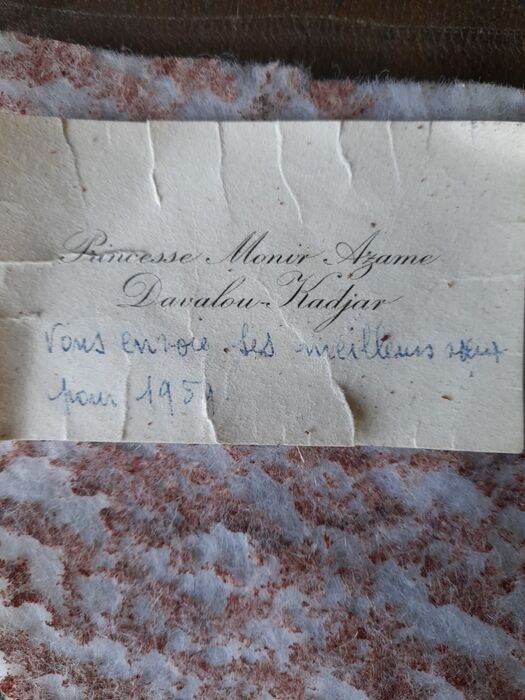 Princesse Monir Azame
Davalou-Kadjar
Vous envoie ses meilleurs vœux
pour 1951